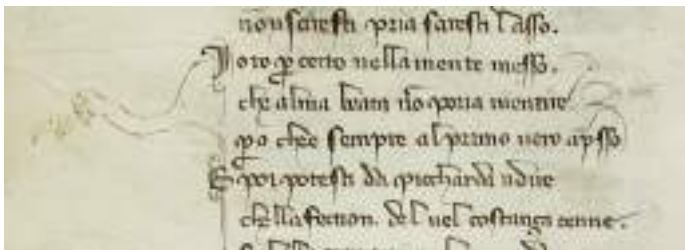 non saresti pria saresti lasso.
Io to ꝑ certo nella mente messo.
che alma beata nō poria mentire
ꝑo chee sempre al primo uero apsso
E poi potesti da piccharda udire
chella fection. del uel costanza tenne.